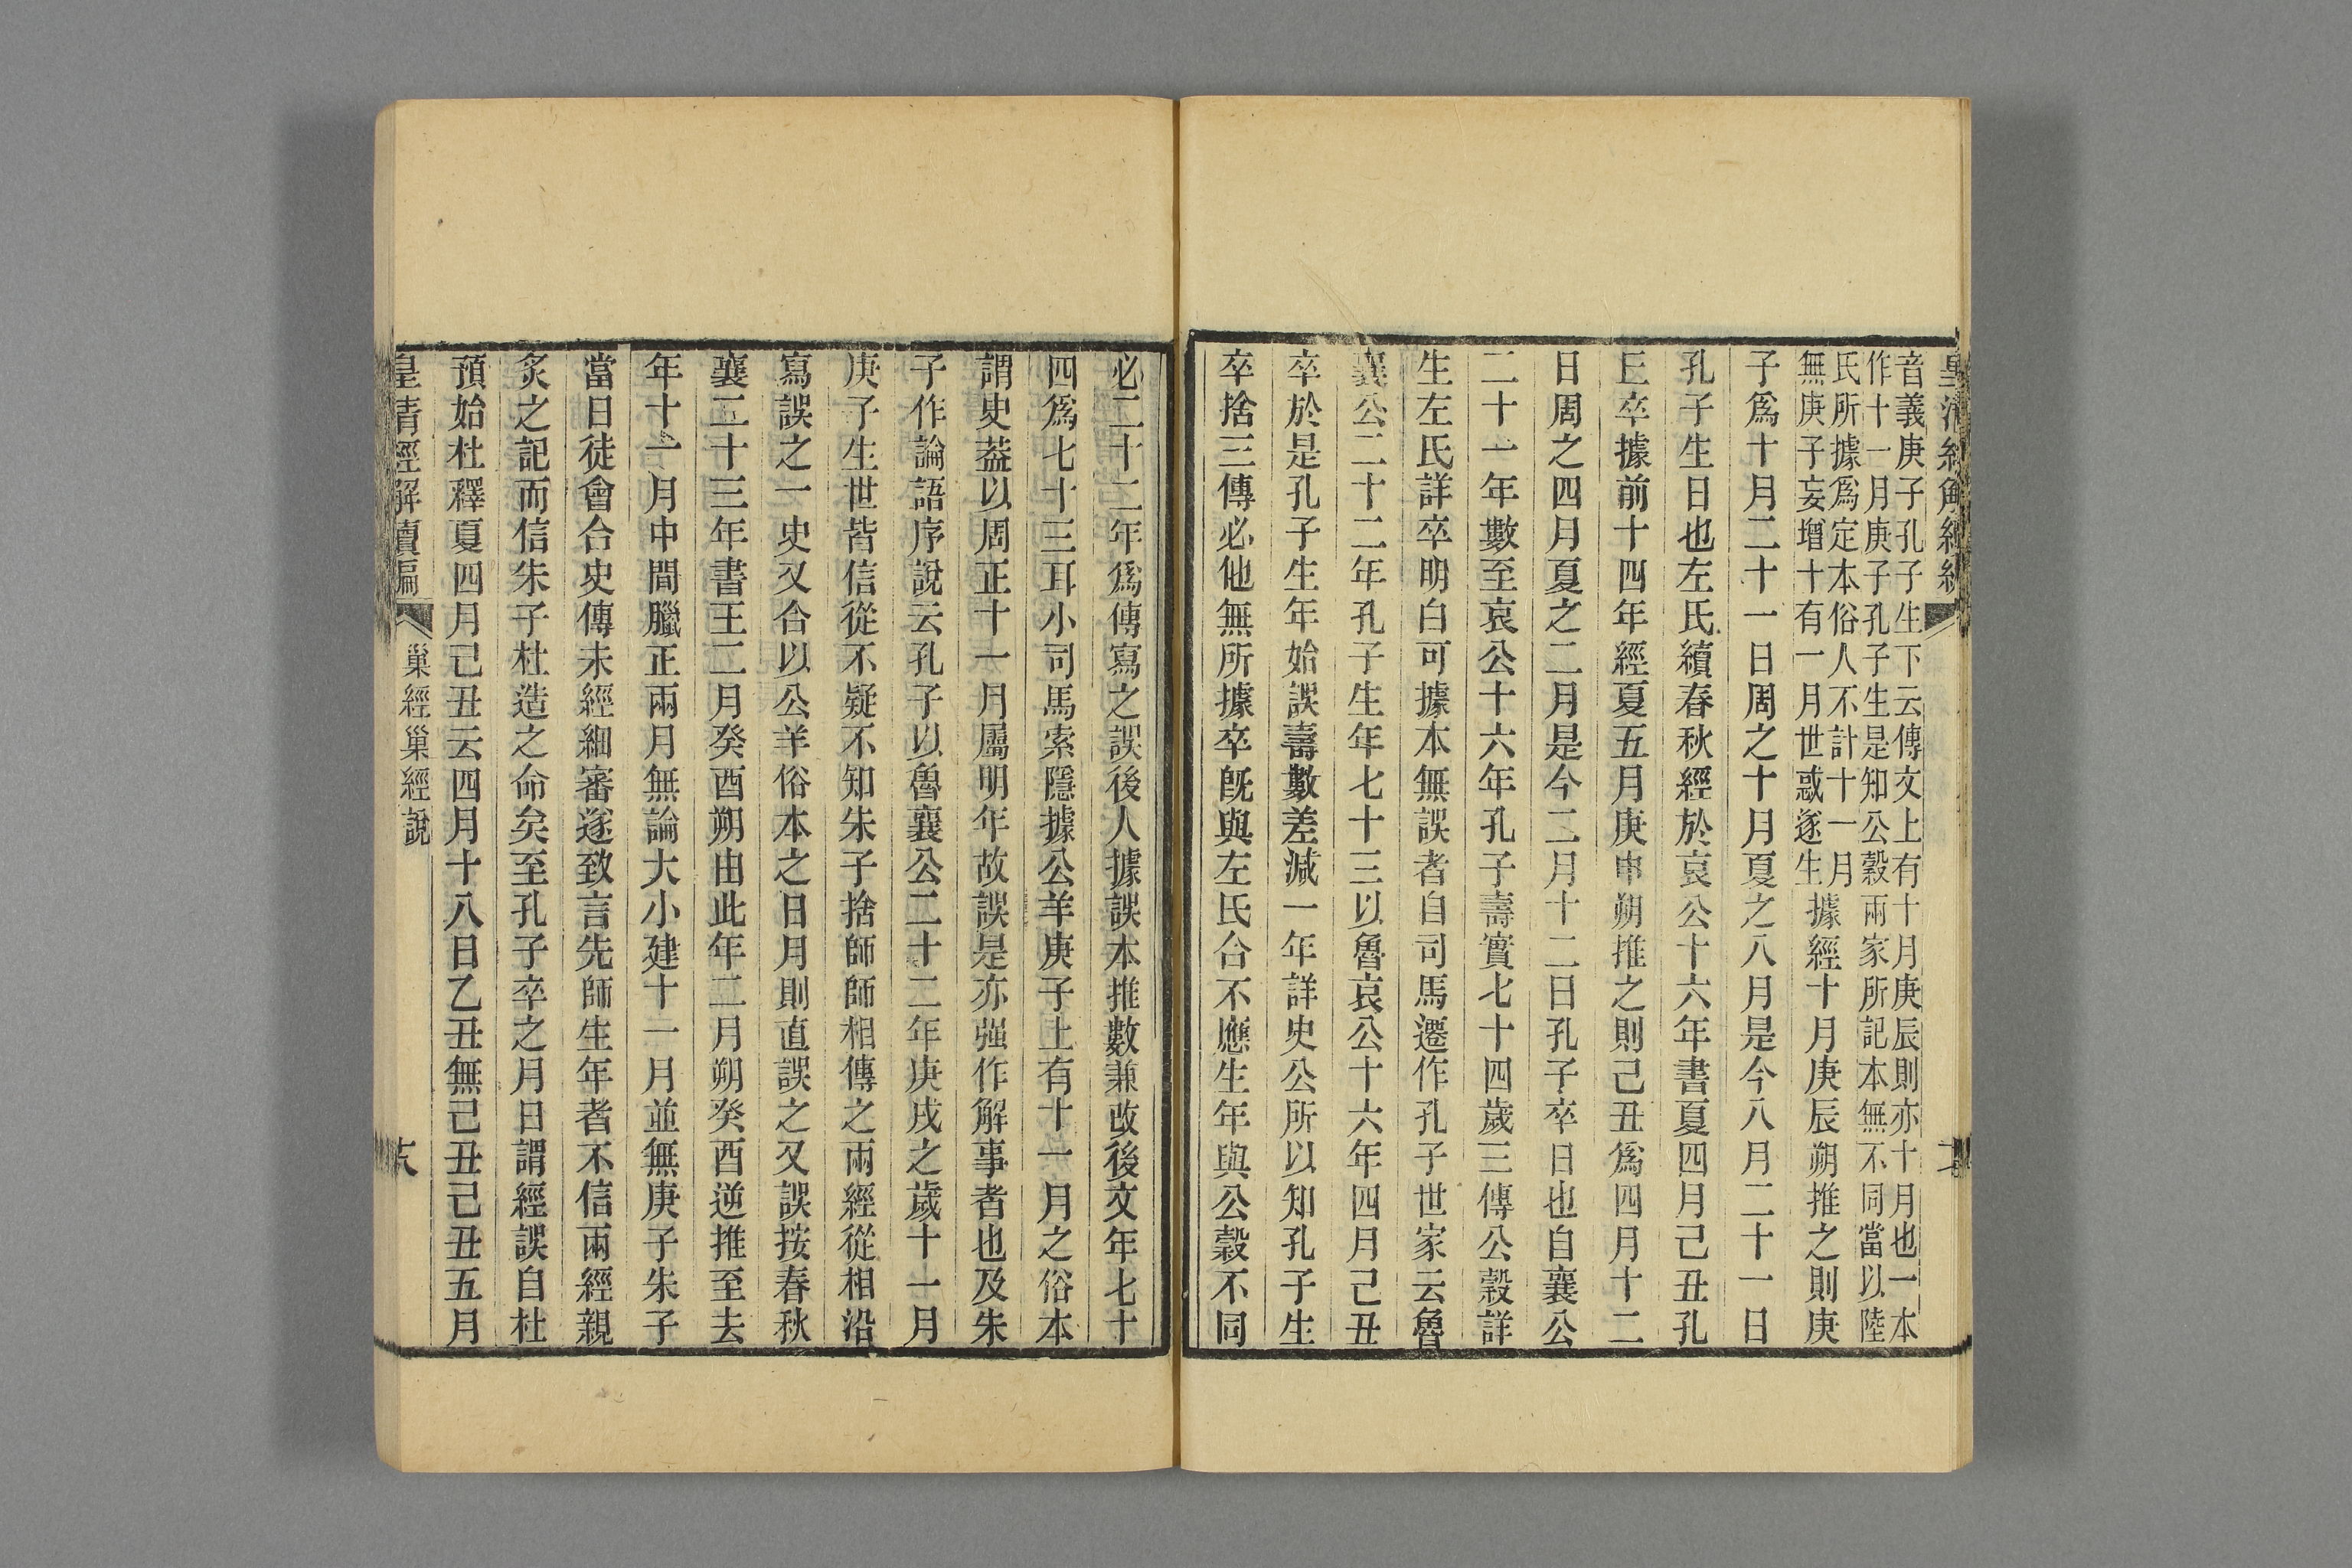 音義庚子孔子生下云傳文上有十月庚辰則亦十月也一本
作十一月庚子孔子生是知公穀兩家所記本無不同當以陸
氏所據爲定本俗人不計十一月
無庚子妄增十有一月世惑遂生
據經十月庚辰朔推之則庚
子爲十月二十一日周之十月夏之八月是今八月二十一日
孔子生日也左氏續春秋經於哀公十六年書夏四月己丑孔
丘卒據前十四年經夏五月庚申朔推之則己丑爲四月十二
日周之四月夏之二月是今二月十二日孔子卒日也自襄公
二十一年數至哀公十六年孔子壽實七十四歲三傳公穀詳
生左氏詳卒明白可據本無誤者自司馬遷作孔子世家云魯
襄公二十二年孔子生年七十三以魯哀公十六年四月己丑
卒於是孔子生年始誤壽數差減一年詳史公所以知孔子生
卒捨三傳必他無所據卒旣與左氏合不應生年與公穀不同
必二十二年爲傳寫之誤後人據誤本推數兼改後文年七十
四爲七十三耳小司馬索隱據公羊庚子上有十一月之俗本
謂史葢以周正十一月屬明年故誤是亦强作解事者也及朱
子作論語序說云孔子以魯襄公二十二年庚戌之歲十一月
庚子生世皆信從不疑不知朱子捨師師相傳之兩經從相沿
寫誤之一史又合以公羊俗本之日月則直誤之又誤按春秋
襄二十三年書王二月癸酉朔由此年二月朔癸酉逆推至去
年十一月中間臘正兩月無論大小建十一月並無庚子朱子
當日徒會合史傳未經細審遂致言先師生年者不信兩經親
炙之記而信朱子杜造之命矣至孔子卒之月日謂經誤自杜
預始杜釋夏四月己丑云四月十八日乙丑無己丑己丑五月
皇清經解續編
巢經巢經說